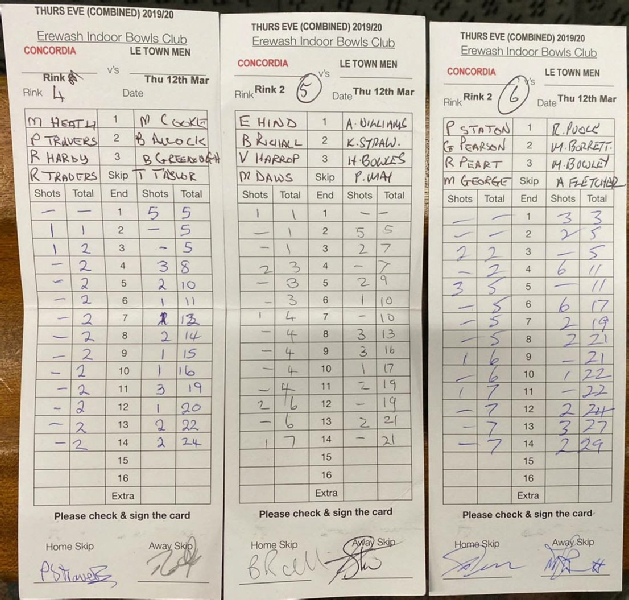 THURS EVE (COMBINED) 2019/20
Erewash Indoor Bowls Club
CONCORDIA LE TOWN MEN
v's
Rink
Rink 4 Date Thu 12th Mar
M HEATH 1 M COOKE
P TRAVERS 2
R HARDY 3
R TRAVERS Skip T TAYLOR
Shots Total End Shots Total
- - 1 5 5
1 1 2 - 5
1 2 3 - 5
- 2 4 3 8
- 2 5 2 10
- 2 6 1 11
- 2 7 1 12
- 2 8 2 14
- 2 9 1 15
- 2 10 1 16
- 2 11 3 19
- 2 12 1 20
- 2 13 2 22
- 2 14 2 24
15
16
Extra
Please check & sign the card
Home Skip Away Skip
THURS EVE (COMBINED) 2019/20
Erewash Indoor Bowls Club
CONCORDIA LE TOWN MEN
v's
Rink Rink 2 5 Date Thu 12th Mar
E HIND 1 A. WILLIAMS
2 K. STRAW.
V HARROP 3 H. BOWLES
M DAWS Skip P. MAY
Shots Total End Shots Total
1 1 1 - -
- 1 2 5 5
- 1 3 2 7
2 3 4 - 7
- 3 5 2 9
- 3 6 1 10
1 4 7 - 10
- 4 8 3 13
- 4 9 3 16
- 4 10 1 17
- 4 11 2 19
2 6 12 - 19
- 6 13 2 21
1 7 14 - 21
15
16
Extra
Please check & sign the card
Home Skip Away Skip
THURS EVE (COMBINED) 2019/20
Erewash Indoor Bowls Club
CONCORDIA LE TOWN MEN
v's
Rink Rink 2 6 Date Thu 12th Mar
P STATON 1 R. POOLE
G PEARSON 2
R PEART 3 M. BOWLEY
M GEORGE Skip A FLETCHER
Shots Total End Shots Total
- - 1 3 3
- - 2 2 5
2 2 3 - 5
- 2 4 6 11
3 5 5 - 11
- 5 6 6 17
- 5 7 2 19
- 5 8 2 21
1 6 9 - 21
- 6 10 1 22
1 7 11 - 22
- 7 12 2 24
- 7 13 3 27
- 7 14 2 29
15
16
Extra
Please check & sign the card
Home Skip Away Skip